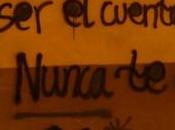 ser el cuento
Nunca te